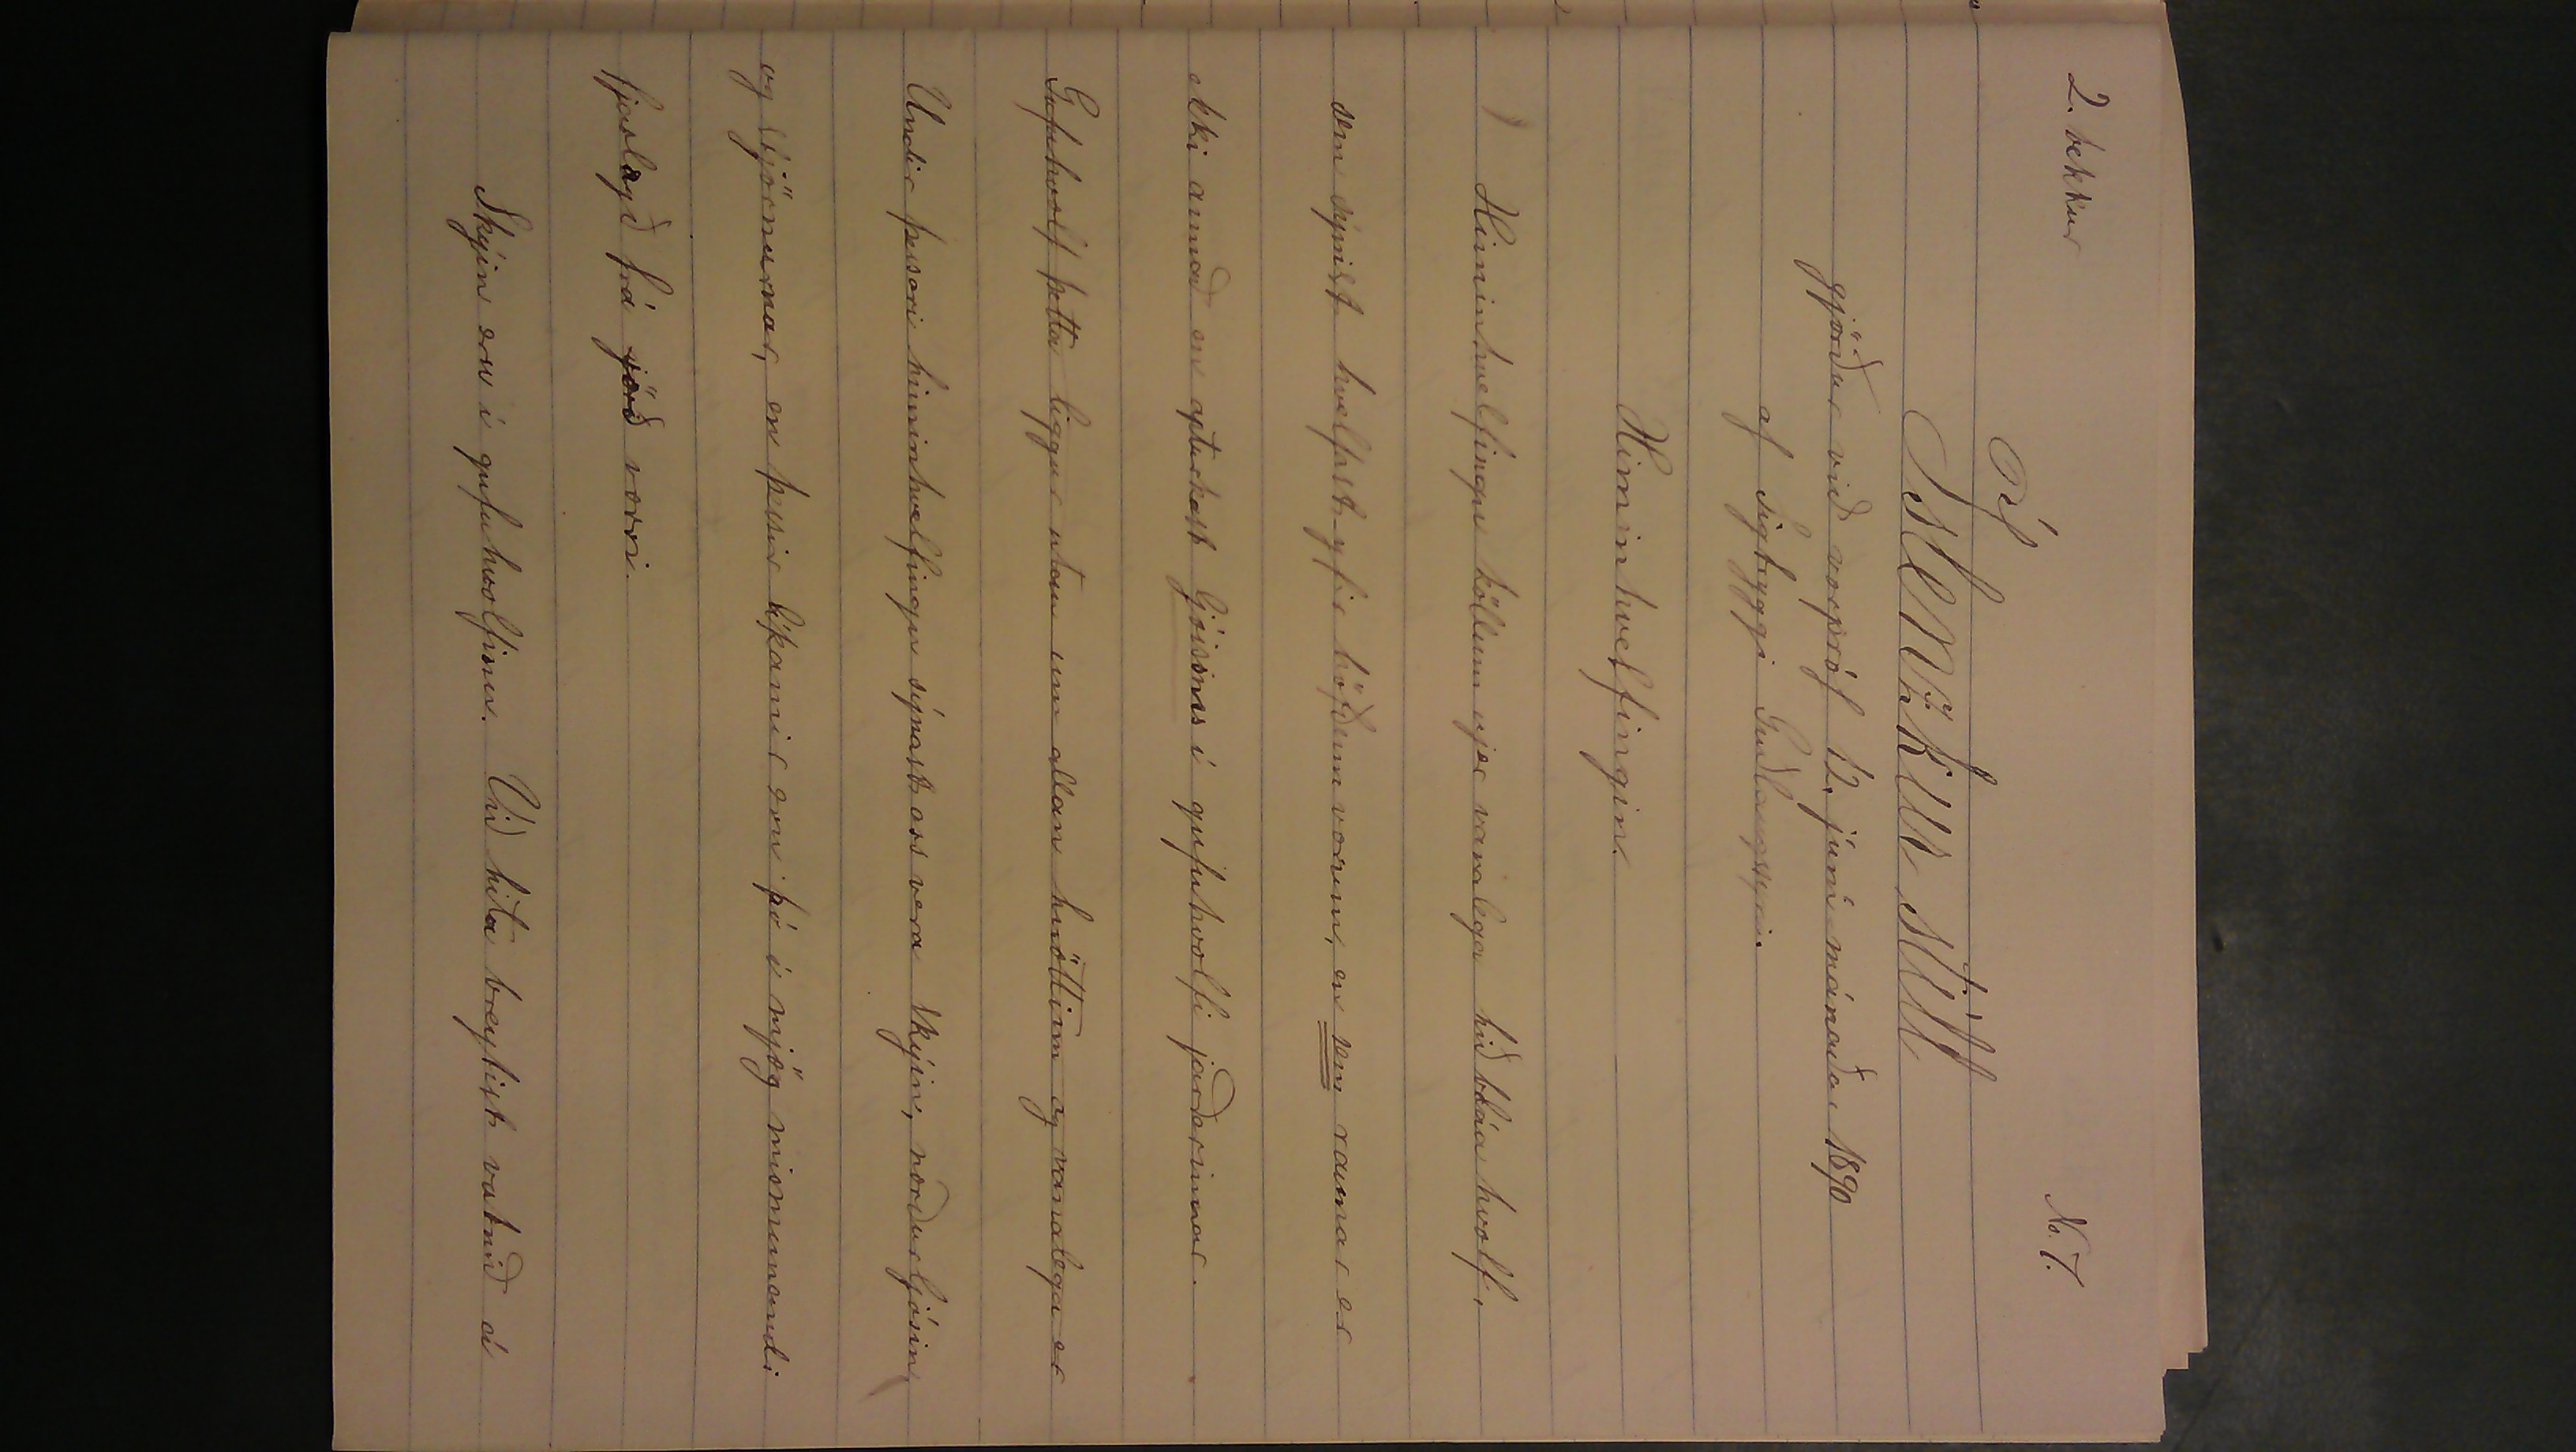 2. bekkur
No. 7.
Ísl
Íslenzkur stíll
gjörður við vorpróf 12. júní mánaðar 1890
af Sigtryggi Guðlaugssyni.
Himinhvelfingin.
Himinhvelfingu köllum vjer vanalega hið bláa hvolf,
sem sýnist hvelfast yfir höfðum vorum, en sem raunar er
ekki annað en apturkast ljóssins í gufuhvolfi jarðarinnar.
Gufuhvolf þetta liggur utan um allan hnöttinn og vanalega er
Undir þessari himinhvelfingu sýnast oss vera skýin, norðurljósin
og stjörnurnar, en þessir líkamir eru þó í mjög mismunandi
fjarlægð frá jörð vorri.
Skýin eru í gufuhvolfinu. Við hita breytist vatnið á